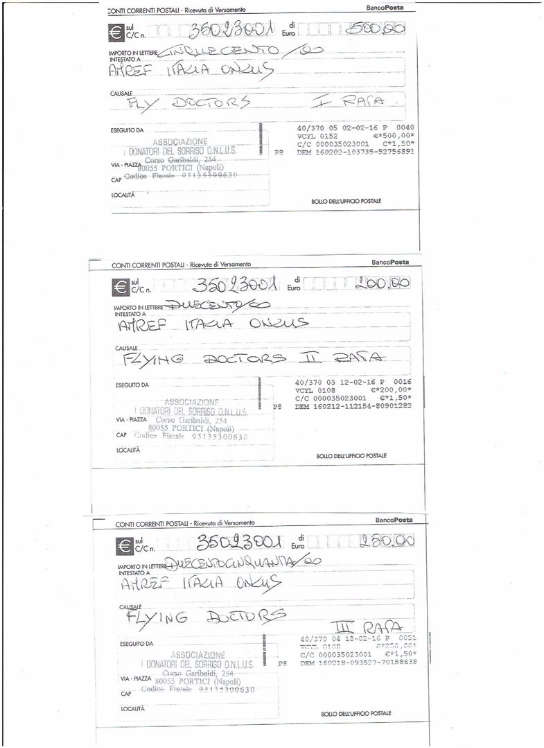 CONTI CORRENTI POSTALI - Ricevuta di Versamento BancoPosta
€ sul C/C n. 35023001 di Euro 500,00
IMPORTO IN LETTERE CINQUECENTO/00
INTESTATO A
AMREF ITALIA ONLUS
CAUSALE
FLY DOCTORS I RATA
ESEGUITO DA
40/370 05 02-02-16 P 0040
VCYL 0152 €*500,00*
C/C 000035023001 €*1,50*
P8 DEM 160202-103735-52756891
ASSOCIAZIONE
I DONATORI DEL SORRISO O.N.L.U.S.
VIA - PIAZZA Corso Garibaldi, 254
80055 PORTICI (Napoli)
CAP Codice Fiscale 95135300630
LOCALITÀ
BOLLO DELL'UFFICIO POSTALE
CONTI CORRENTI POSTALI - Ricevuta di Versamento BancoPosta
€ sul C/C n. 35023001 di Euro 200,00
IMPORTO IN LETTERE DUECENTO/00
INTESTATO A
AMREF ITALIA ONLUS
CAUSALE
FLYING DOCTORS II RATA
ESEGUITO DA
40/370 03 12-02-16 P 0016
VCYL 0108 €*200,00*
C/C 000035023001 €*1,50*
P8 DEM 160212-112154-80901282
ASSOCIAZIONE
I DONATORI DEL SORRISO O.N.L.U.S.
VIA - PIAZZA Corso Garibaldi, 254
80055 PORTICI (Napoli)
CAP Codice Fiscale 95135300630
LOCALITÀ
BOLLO DELL'UFFICIO POSTALE
CONTI CORRENTI POSTALI - Ricevuta di Versamento BancoPosta
€ sul C/C n. 35023001 di Euro 250,00
IMPORTO IN LETTERE DUECENTOCINQUANTA/00
INTESTATO A
AMREF ITALIA ONLUS
CAUSALE
FLYING DOCTORS III RATA
ESEGUITO DA
40/370 04 18-02-16 P 0051
VCYL 0108 €*250,00*
C/C 000035023001 €*1,50*
P8 DEM 160218-093527-70158638
ASSOCIAZIONE
I DONATORI DEL SORRISO O.N.L.U.S.
VIA - PIAZZA Corso Garibaldi, 254
80055 PORTICI (Napoli)
CAP Codice Fiscale 95135300630
LOCALITÀ
BOLLO DELL'UFFICIO POSTALE